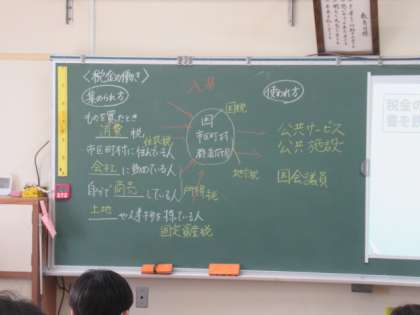 〈税金の働き〉
集められ方
ものを買たとき
消費税
住民税
市区町村に住んでいる人
会社に勤めている人
自分で商売している人
所得税
土地や建物を持っている人
固定資産税
国税
国
市区町村
都道府県
地方税
使われ方
公共サービス
公共施設
国会議員
税金の